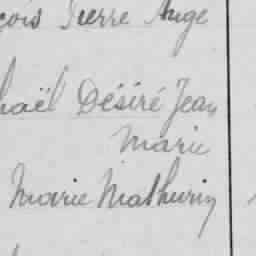 çois Pierre Ange
haël Désiré Jean
Marie
Marie Mathurin